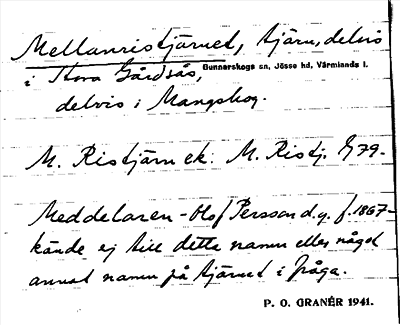 Mellanristjärnet, tjärn, delvis
i Stora Gårdsås, Gunnarskogs sn, Jösse hd, Värmlands l.
delvis i Mangskog.
M. Ristjärn ek. M. Ristj. G 79.
Meddelaren - Olof Persson d.y. f. 1867 -
kände ej till detta namn eller något
annat namn på tjärnet i fråga.
P. O. GRANÉR 1941.